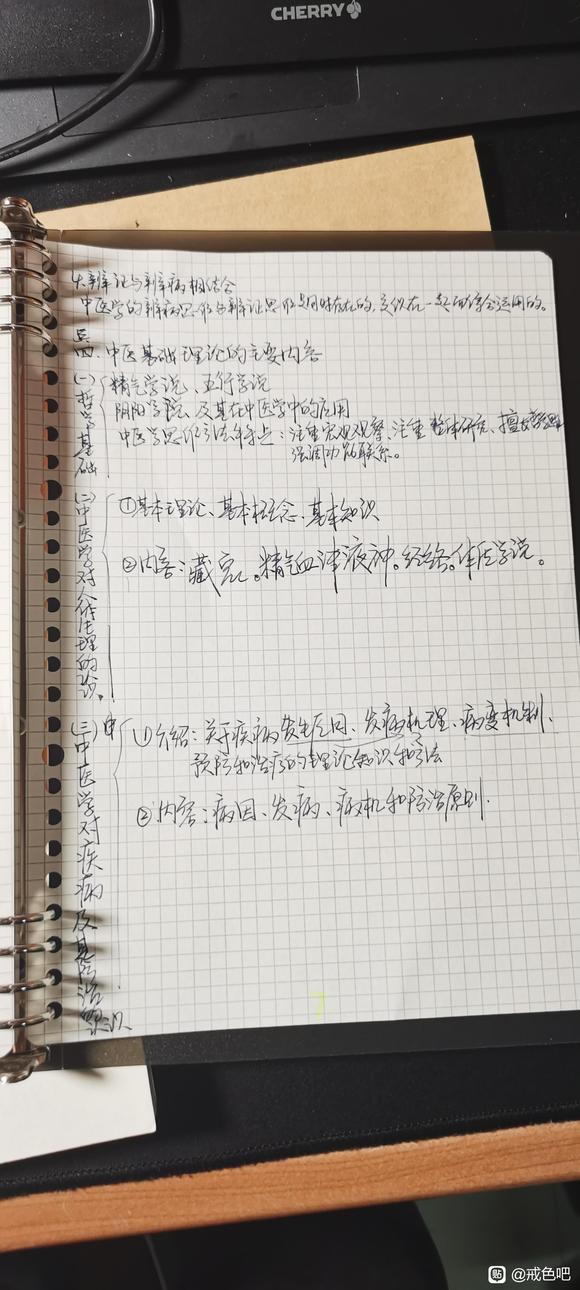 CHERRY
4.辨证与辨病相结合
中医学的辨病思维与辨证思维是同时存在的,交织在一起而综合运用的。
四、中医基础理论的主要内容
(一)哲学基础
精气学说、五行学说
阴阳学说 及其在中医学中的应用
中医学思维方法特点:注重宏观观察、注重整体研究、擅长
强调功能联系。
(二)中医学对人体生理的认识。
①基本理论、基本概念、基本知识
②内容:藏象。精气血津液神。经络。体质学说。
(三)中医学对疾病及其防治的认识
①介绍:关于疾病发生原因、发病机理、病变机制、
预防和治疗的理论知识和方法
②内容:病因、发病、病机和防治原则.
7
贴 @戒色吧